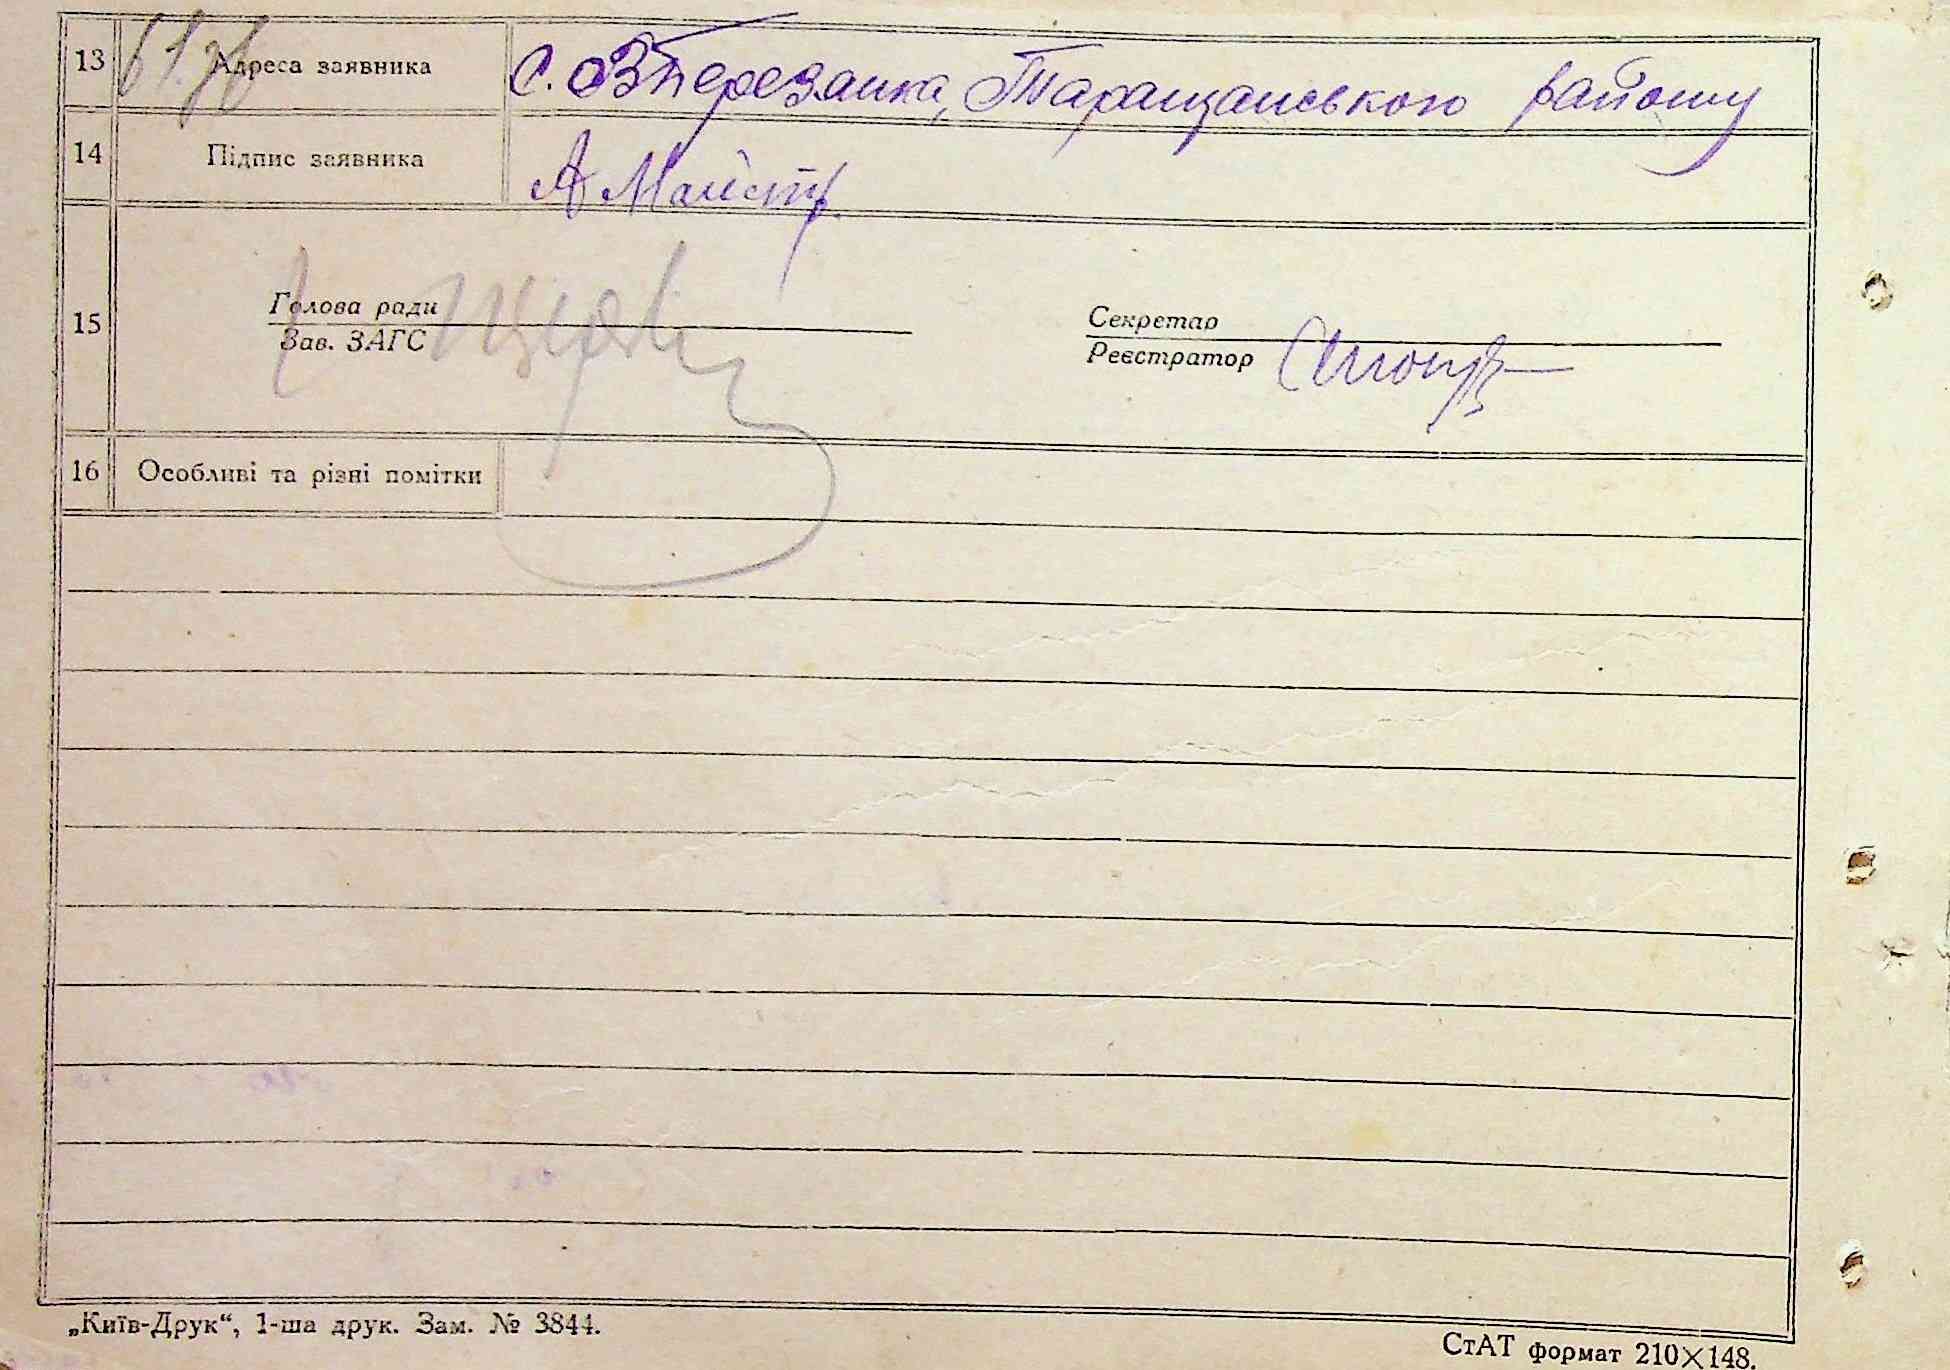 13 Адреса заявника с. ВБерезанка, Таращанського району
14 Підпис заявника А Майстр
15 Голова ради Секретар
Зав. ЗАГС Реєстратор
16 Особливі та різні помітки
„Київ-Друк“, 1-ша друк. Зам. № 3844.
СтАТ формат 210×148.